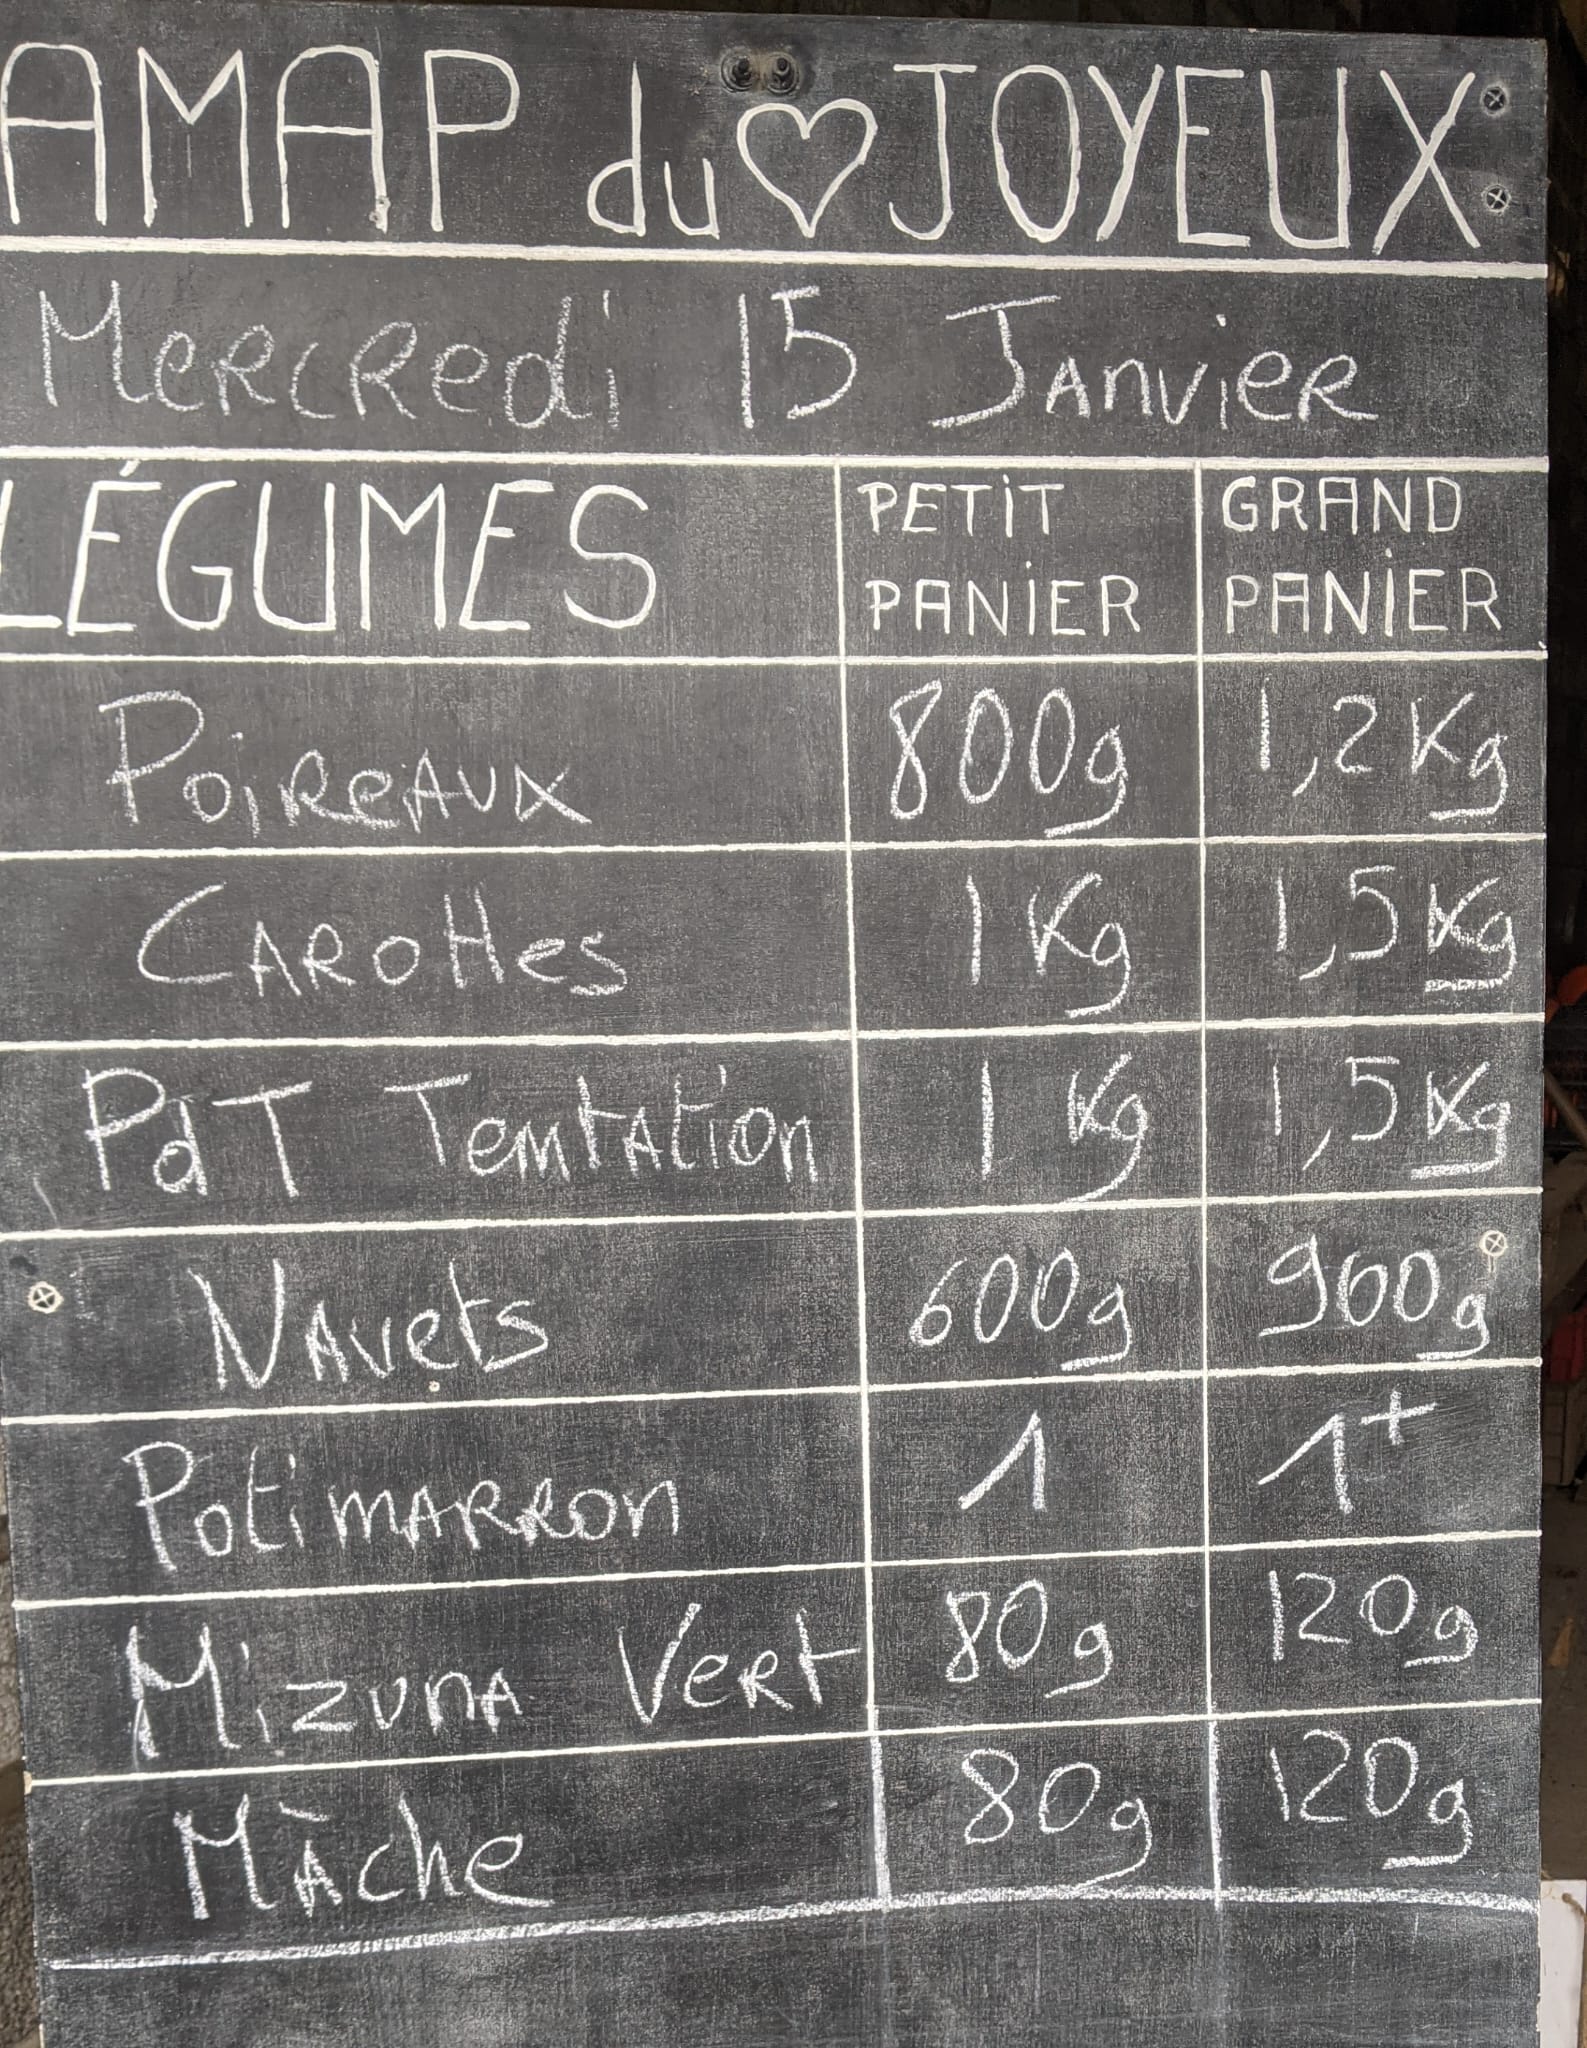 AMAP du ♡ JOYEUX
Mercredi 15 Janvier
LÉGUMES PETIT PANIER GRAND PANIER
Poireaux 800g 1,2Kg
Carottes 1Kg 1,5Kg
PdT Temtation 1Kg 1,5Kg
Navets 600g 900g
Potimarron 1 1+
Mizuna Vert 80g 120g
Mâche 80g 120g